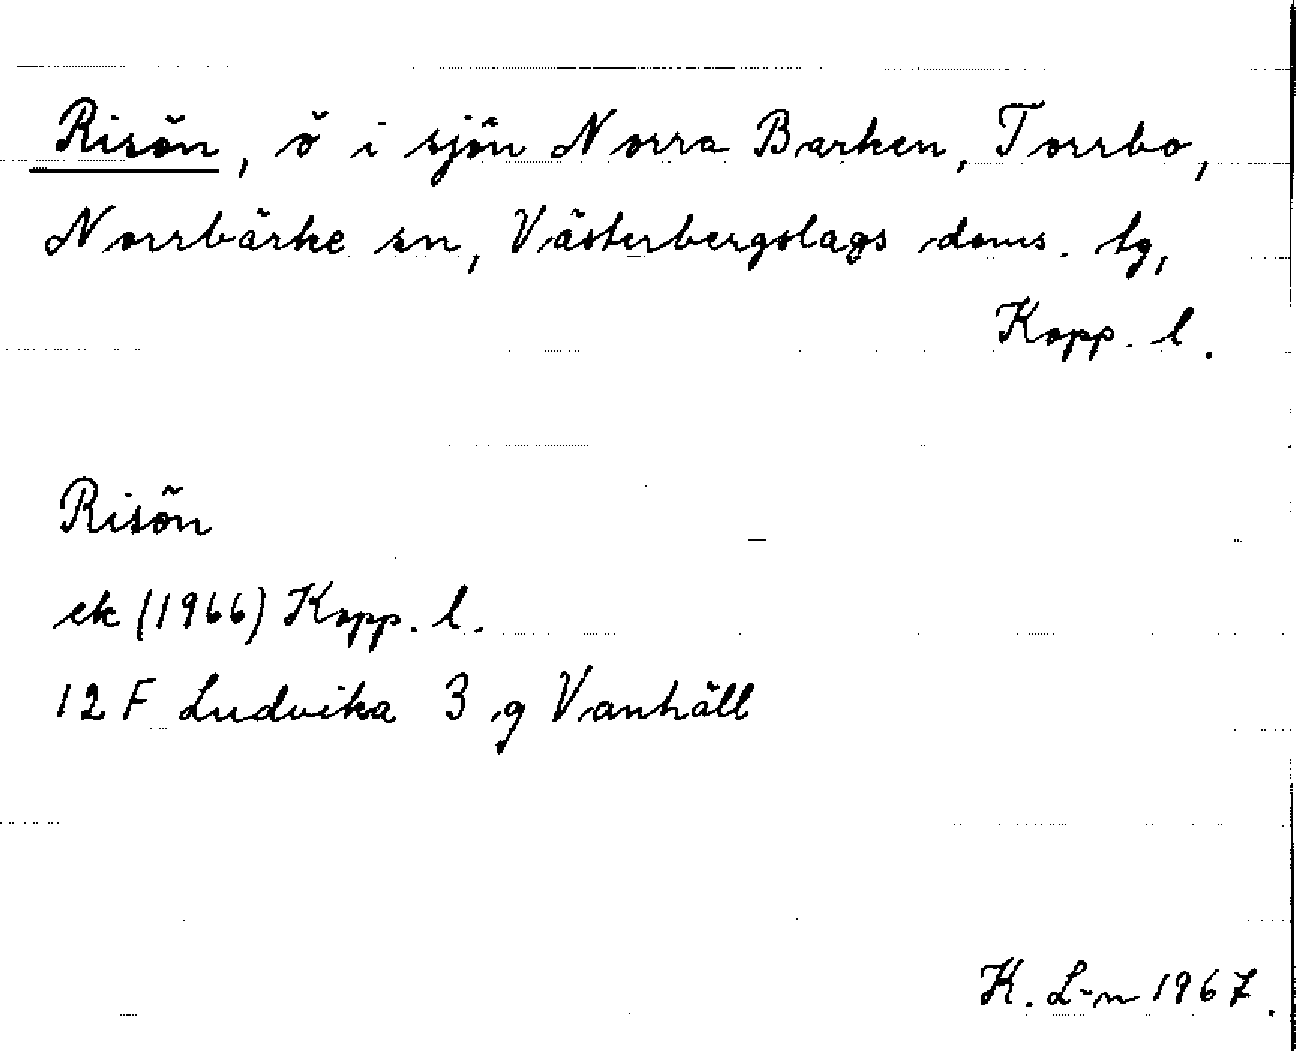 Risön, ö i sjön Norra Barken, Torrbo,
Norrbärke sn, Västerbergslags doms. tg,
Kopp. l.
Risön
ek (1966) Kopp. l.
12 F Ludvika 3 g Vanhäll
K. L-n 1967.